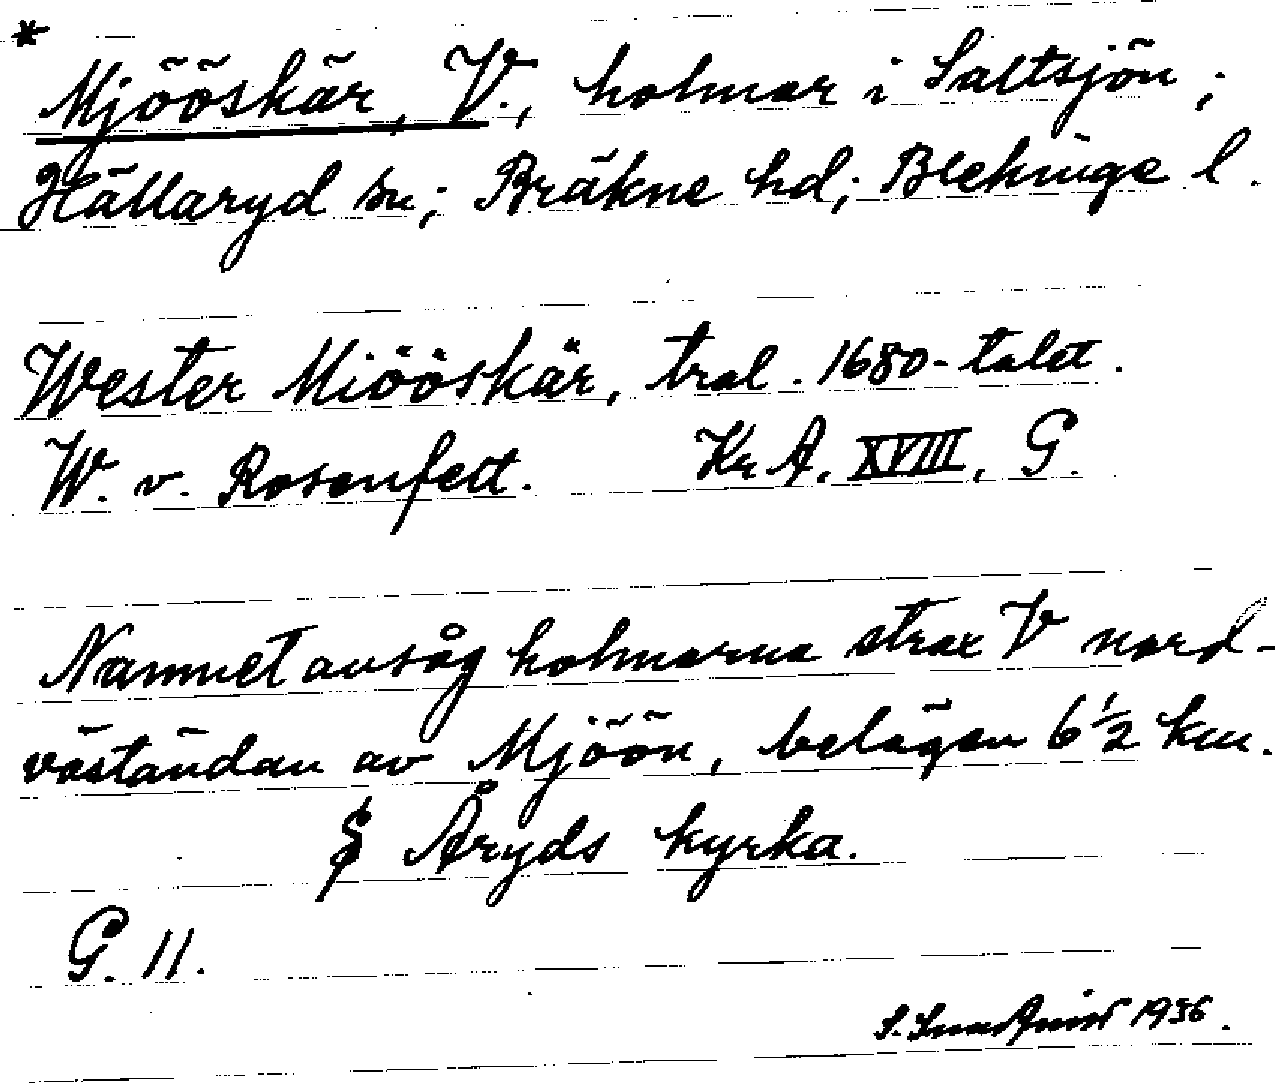 *
Mjööskär, V., holmar i Saltsjön;
Hällaryd sn; Bräkne hd; Blekinge l.
Wester Miööskär, tral. 1680-talet.
W. v. Rosenfelt. Kr A, XVIII, G.
Namnet avsåg holmarna strax V nord-
västandan av Mjöön, belägen 6 1/2 km.
S Åryds kyrka.
G. 11.
S. 1936.